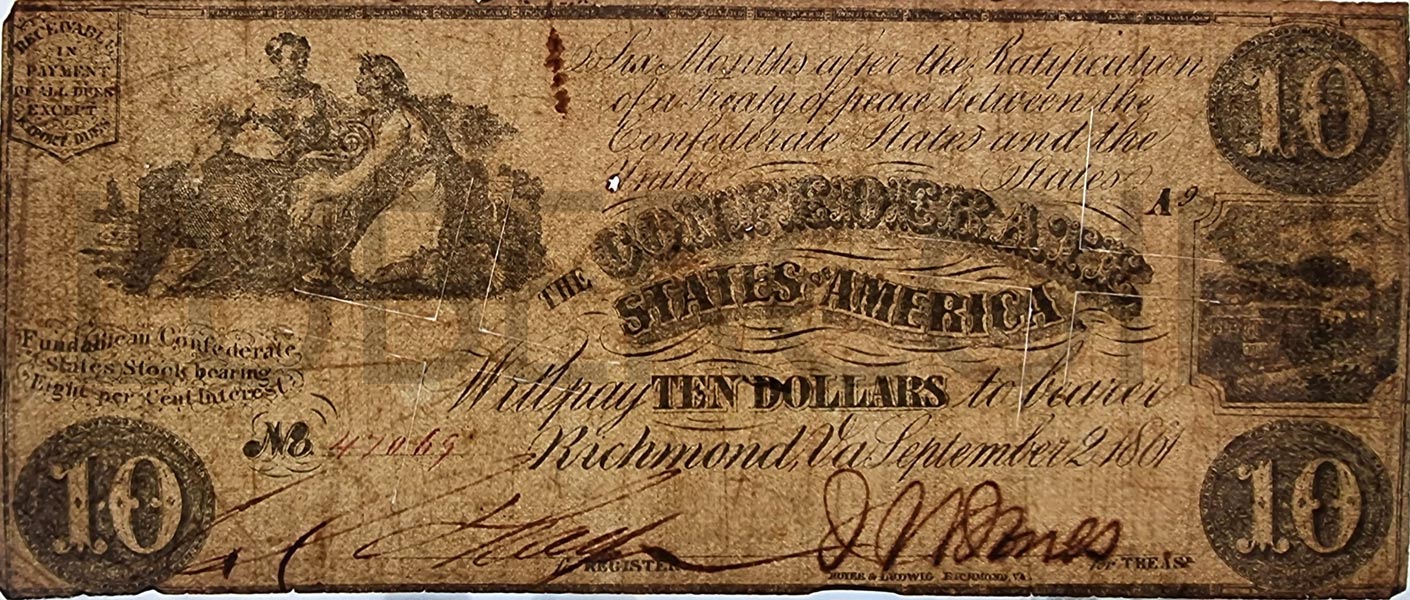 RECEIVABLE
IN
PAYMENT
OF ALL DUES
EXCEPT
EXPORT DUES
Six Months after the Ratification
of a Treaty of peace between the
Confederate States and the
United States
10
A9
THE CONFEDERATE
STATES OF AMERICA
Fundable in Confederate
States Stock bearing
Eight per Cent Interest
Will pay TEN DOLLARS to bearer
No. 47069
Richmond, Va September 2, 1861
10
10
for REGISTER
J W Jones
for TREASR
HOYER & LUDWIG RICHMOND, VA.